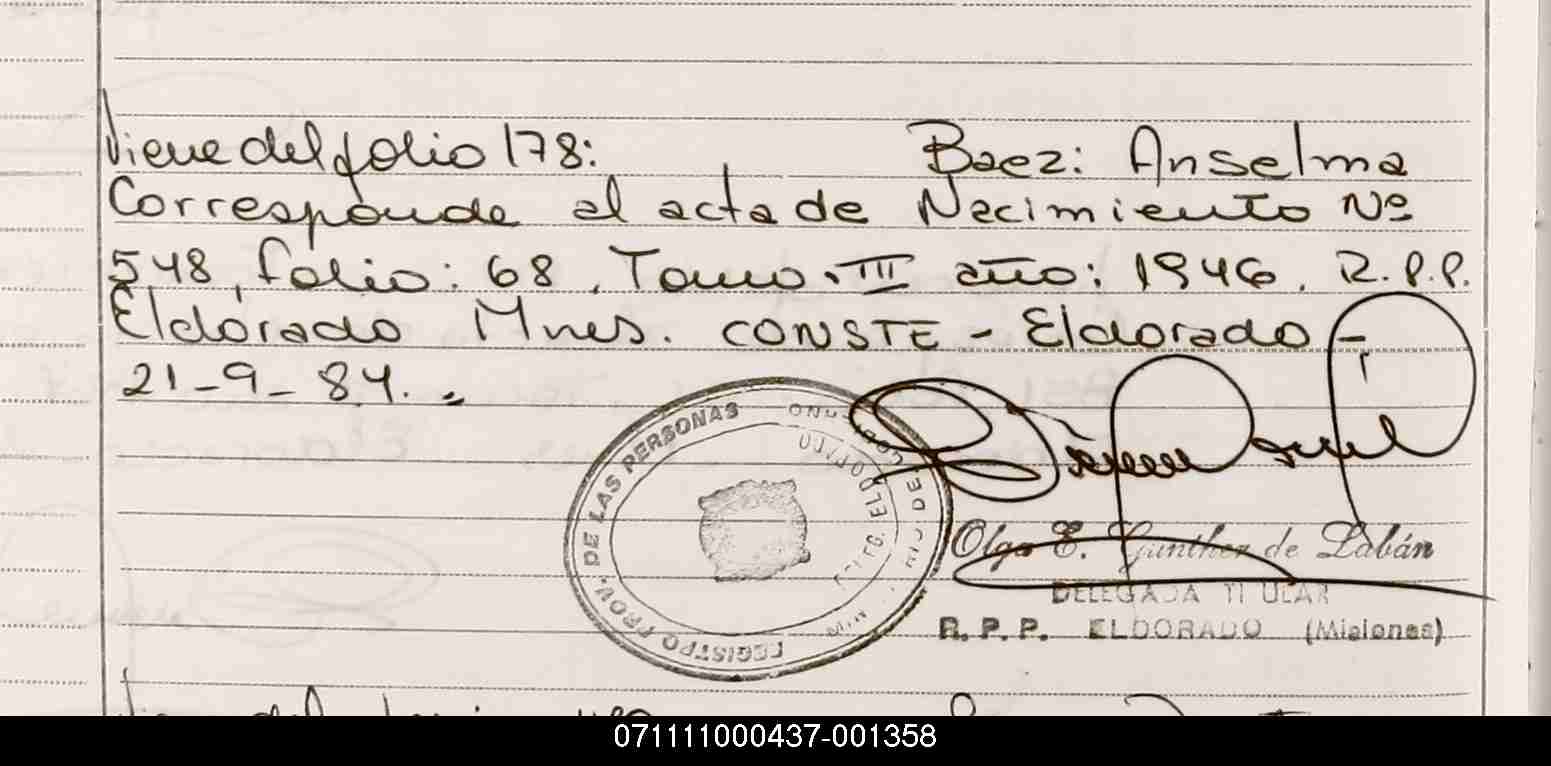 Viene del folio 178: Baez: Anselma
Corresponde al acta de Nacimiento Nº
548, folio: 68. Tomo. III año: 1946. R.P.P.
Eldorado Mnes. CONSTE - Eldorado -
21-9-84.
REGISTRO PROV. DE LAS PERSONAS
Olga E. Gunther de Labán
DELEGADA TITULAR
R. P. P. ELDORADO (Misiones)
071111000437-001358